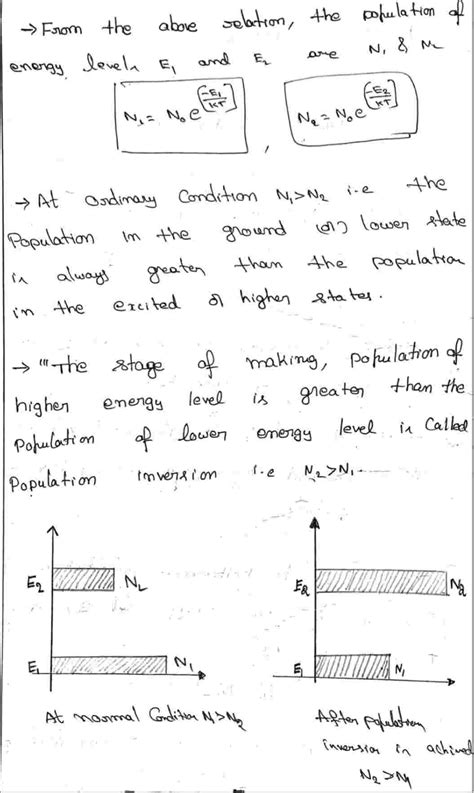 → From the above relation, the population of
energy levels E₁ and E₂ are N₁ & N₂
N₁ = N₀ e^(-E₁/KT) , N₂ = N₀ e^(-E₂/KT)
→ At Ordinary Condition N₁>N₂ i.e the
Population in the ground (or) lower state
is always greater than the population
in the excited or higher states.
→ "The stage of making, population of
higher energy level is greater than the
population of lower energy level is Called
Population inversion i.e N₂>N₁.
E₂ N₂
E₁ N₁
At normal Condition N₁>N₂
E₂ N₂
E₁ N₁
After population
inversion is achived
N₂>N₁